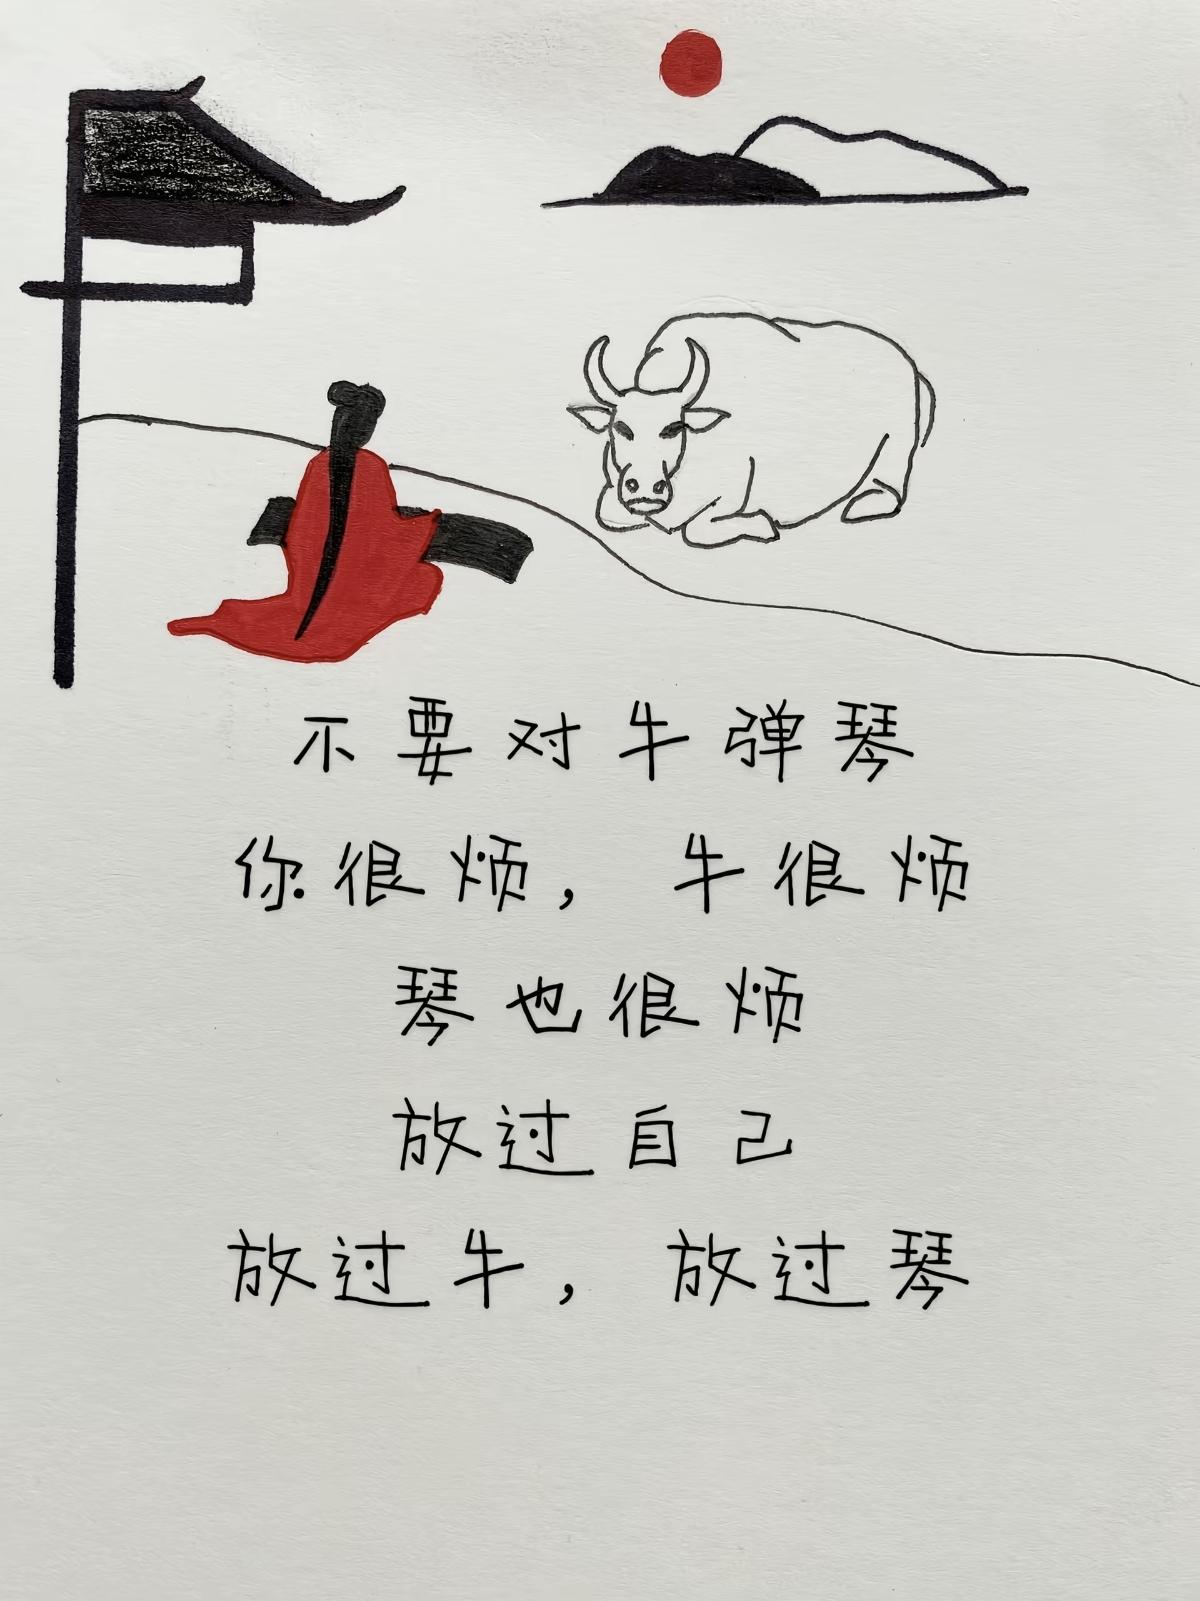 不要对牛弹琴
你很烦，牛很烦
琴也很烦
放过自己
放过牛，放过琴